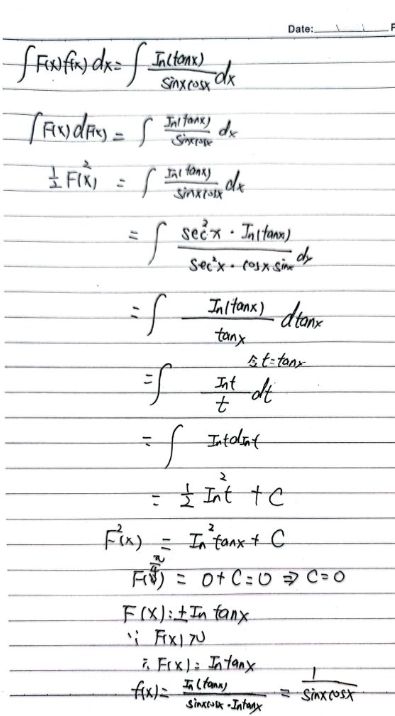 Date:
∫ F(x) f(x) dx = ∫ In(tanx) / sinxcosx dx
∫ F(x) dF(x) = ∫ In(tanx) / sinxcosx dx
1/2 F²(x) = ∫ In(tanx) / sinxcosx dx
= ∫ sec²x · In(tanx) / sec²x · cosx sinx dx
= ∫ In(tanx) / tanx dtanx
令t=tanx
= ∫ Int / t dt
= ∫ Int dInt
= 1/2 In²t + C
F²(x) = In²tanx + C
F(π/4) = 0 + C = 0 ⇒ C=0
F(x) = ±In tanx
∵ F(x) >0
∴ F(x) = Intanx
f(x) = In(tanx) / sinxcosx · Intanx = 1 / sinxcosx